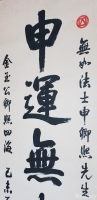 無如法士申卿熙先生
申運無
金玉公卿熙四海 己未